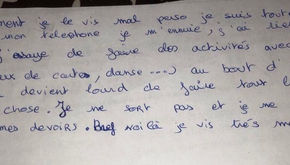 ment je le vis mal parso je suis tout
mon telephone je m'ennuie, j'ai
j'essaye de faire des activités avec
eux de cartes, danse ...) au bout d'
devient lourd de faire tout l
chose. Je ne sort pas et je me
mes devoirs. Bref voilà je vis très m